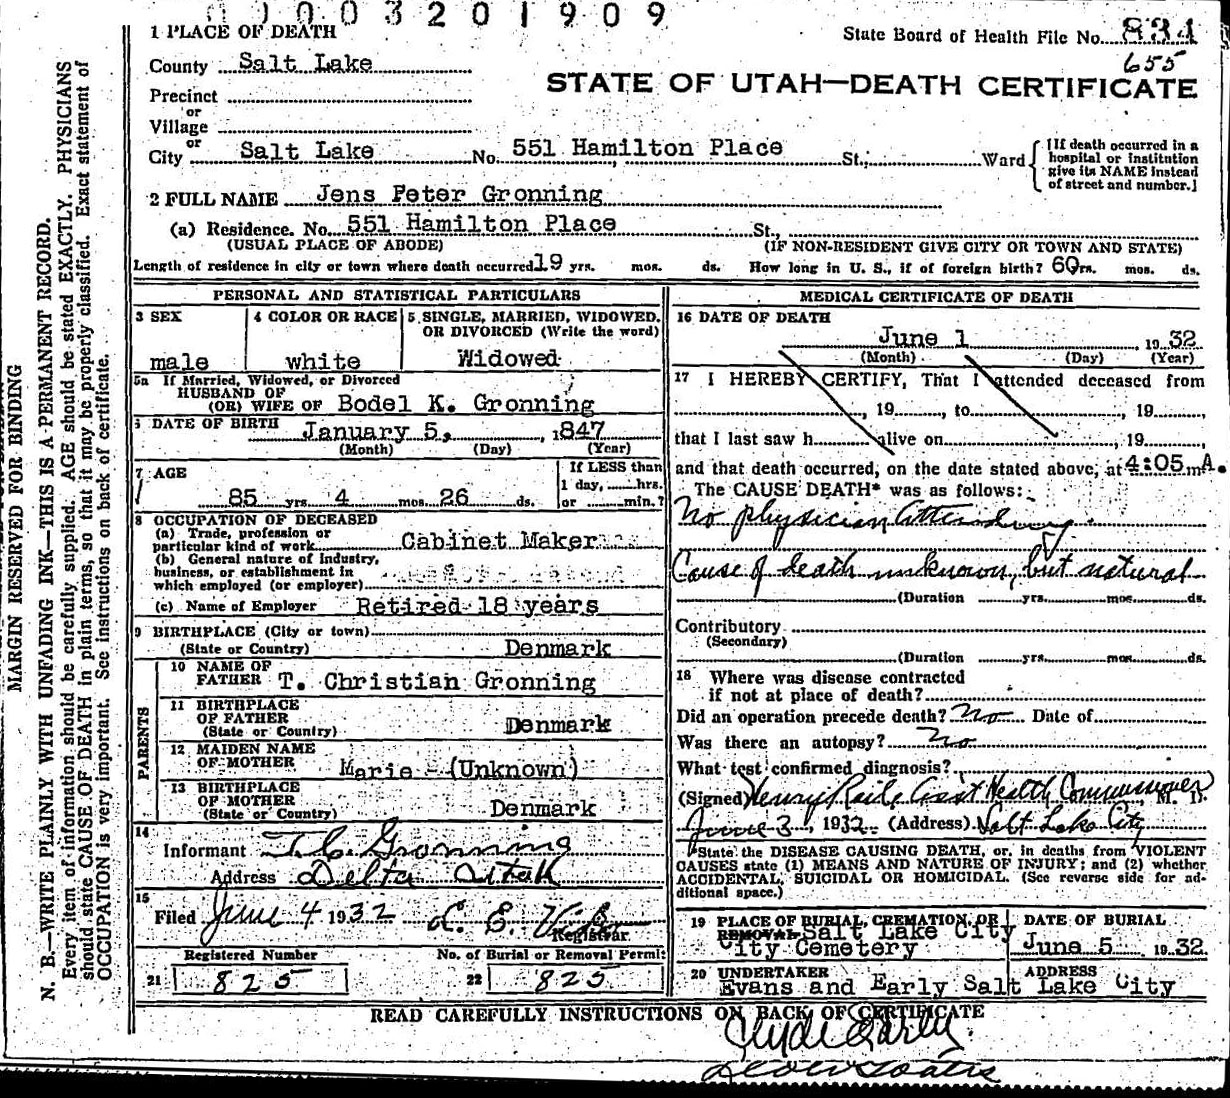 0003201909
1 PLACE OF DEATH
State Board of Health File No. 834
655
County Salt Lake
STATE OF UTAH—DEATH CERTIFICATE
Precinct
or
Village
or
City Salt Lake No. 551 Hamilton Place St.; Ward
[If death occurred in a
hospital or institution
give its NAME instead
of street and number.]
2 FULL NAME Jens Peter Gronning
(a) Residence. No. 551 Hamilton Place St.,
(USUAL PLACE OF ABODE) (IF NON-RESIDENT GIVE CITY OR TOWN AND STATE)
Length of residence in city or town where death occurred 19 yrs. mos. ds. How long in U. S., if of foreign birth? 60 yrs. mos. ds.
PERSONAL AND STATISTICAL PARTICULARS
3 SEX
male
4 COLOR OR RACE
white
5 SINGLE, MARRIED, WIDOWED,
OR DIVORCED (Write the word)
Widowed
5a If Married, Widowed, or Divorced
HUSBAND OF
(OR) WIFE OF Bodel K. Gronning
6 DATE OF BIRTH January 5, 1847
(Month) (Day) (Year)
7 AGE
85 yrs. 4 mos. 26 ds.
If LESS than
1 day, hrs.
or min.?
8 OCCUPATION OF DECEASED
(a) Trade, profession or
particular kind of work Cabinet Maker
(b) General nature of industry,
business, or establishment in
which employed (or employer)
(c) Name of Employer Retired 18 years
9 BIRTHPLACE (City or town)
(State or Country) Denmark
PARENTS
10 NAME OF
FATHER T. Christian Gronning
11 BIRTHPLACE
OF FATHER
(State or Country) Denmark
12 MAIDEN NAME
OF MOTHER Marie - (Unknown)
13 BIRTHPLACE
OF MOTHER
(State or Country) Denmark
14
Informant T. C. Gronning
Address Delta Utah
15
Filed June 4 1932 L. E.
Registrar.
Registered Number
21 825
No. of Burial or Removal Permit
22 825
MEDICAL CERTIFICATE OF DEATH
16 DATE OF DEATH
June 1 , 1932
(Month) (Day) (Year)
17 I HEREBY CERTIFY, That I attended deceased from
, 19 , to , 19 ,
that I last saw h alive on , 19 ,
and that death occurred, on the date stated above, at 4:05 m A.
The CAUSE DEATH* was as follows:
No physician attending.
Cause of death unknown, but natural
(Duration yrs. mos. ds.
Contributory
(Secondary)
(Duration yrs. mos. ds.
18 Where was disease contracted
if not at place of death?
Did an operation precede death? No Date of
Was there an autopsy? No
What test confirmed diagnosis?
(Signed) Henry Raile Ass't Health Commissioner, M. D.
June 3, 1932 (Address) Salt Lake City
*State the DISEASE CAUSING DEATH, or, in deaths from VIOLENT
CAUSES state (1) MEANS AND NATURE OF INJURY; and (2) whether
ACCIDENTAL, SUICIDAL OR HOMICIDAL. (See reverse side for ad-
ditional space.)
19 PLACE OF BURIAL, CREMATION, OR
REMOVAL Salt Lake City
City Cemetery
DATE OF BURIAL
June 5 1932
20 UNDERTAKER ADDRESS
Evans and Early Salt Lake City
READ CAREFULLY INSTRUCTIONS ON BACK OF CERTIFICATE
Clyde Early
MARGIN RESERVED FOR BINDING
N. B.—WRITE PLAINLY WITH UNFADING INK—THIS IS A PERMANENT RECORD.
Every item of information should be carefully supplied. AGE should be stated EXACTLY. PHYSICIANS
should state CAUSE OF DEATH in plain terms, so that it may be properly classified. Exact statement of
OCCUPATION is very important. See instructions on back of certificate.